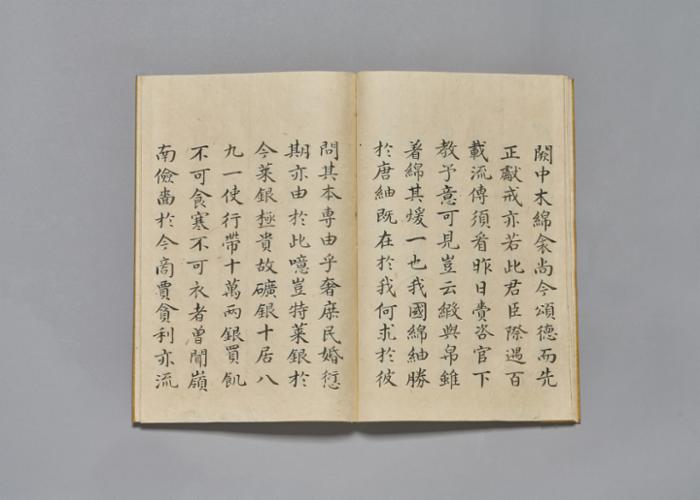 闕中木綿衾尚今頌德而先
正獻戒亦若此君臣際遇百
載流傳須看昨日賫咨官下
教予意可見豈云緞與帛雖
着綿其煖一也我國綿紬勝
於唐紬旣在於我何求於彼
問其本專由乎奢靡民婚愆
期亦由於此噫豈特菜銀於
今菜銀極貴故礦銀十居八
九一使行帶十萬兩銀買飢
不可食寒不可衣者曾聞嶺
南儉嗇於今商賈貪利亦流